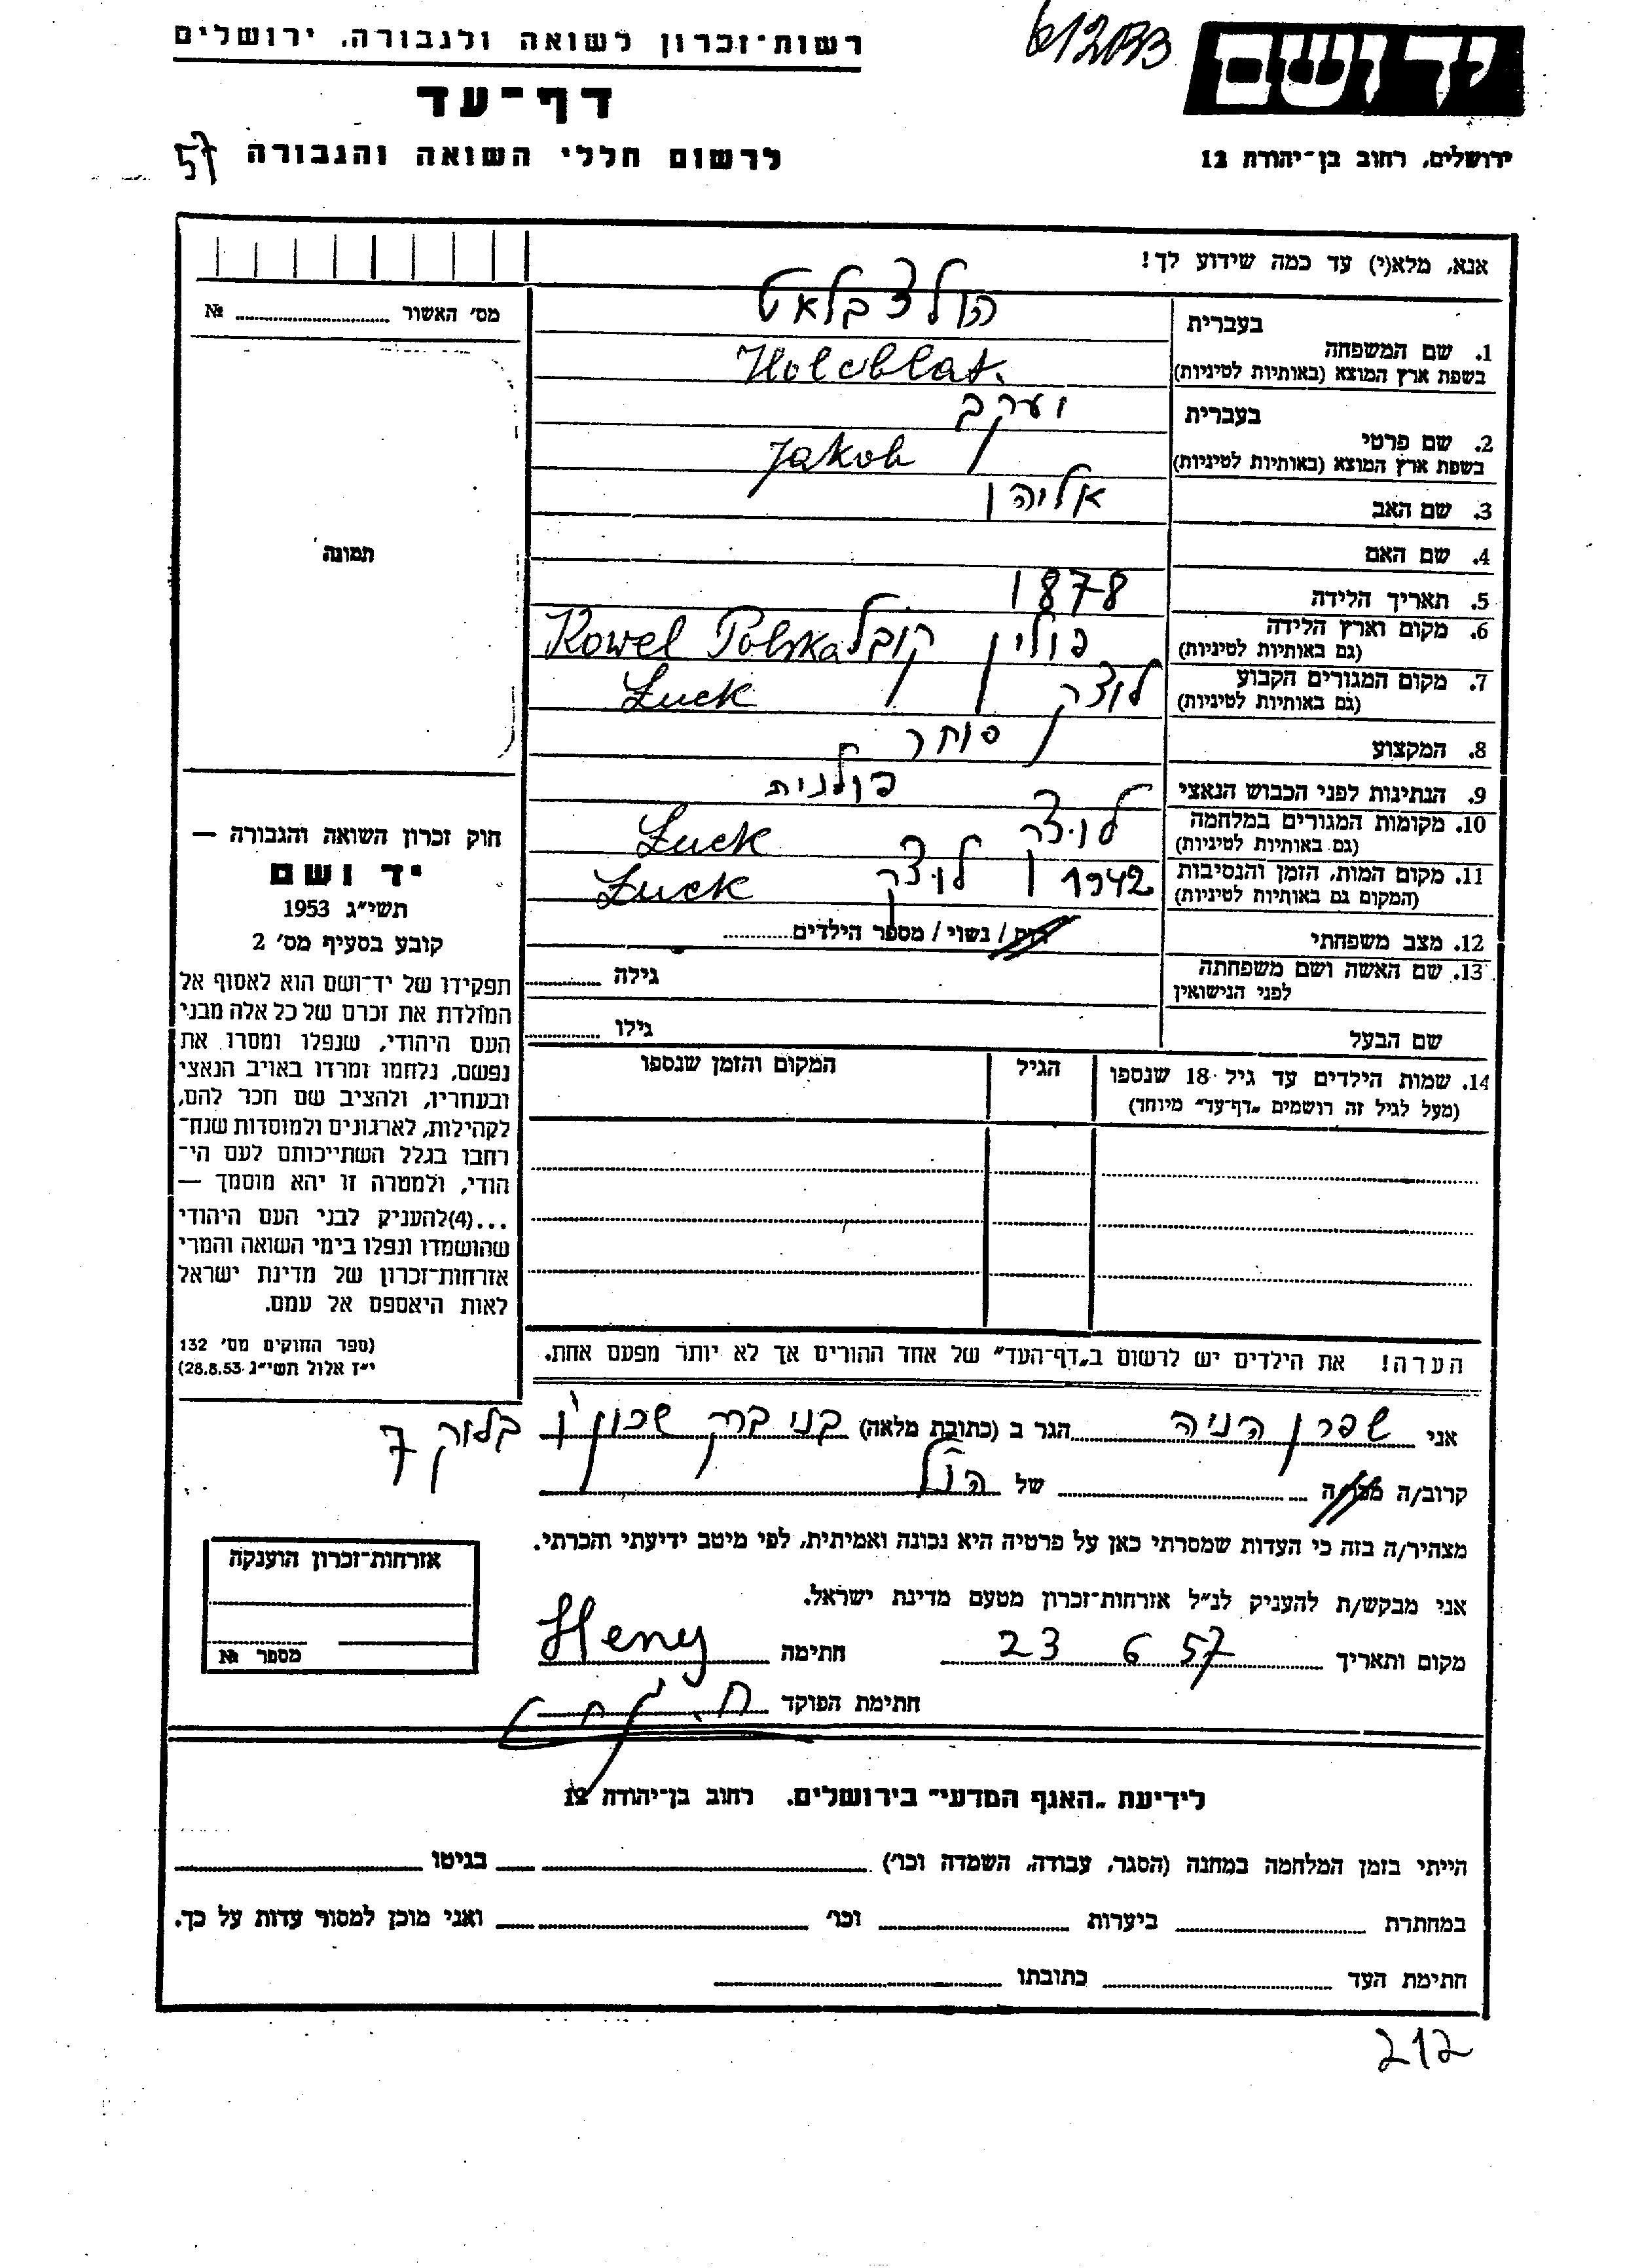 רשות־זכרון לשואה ולגבורה, ירושלים
612033
יד ושם
דף־עד
לרשום חללי השואה והגבורה 57
ירושלים, רחוב בן־יהודה 12
אנא, מלא(י) עד כמה שידוע לך!
מס׳ האשור ........ №
תמונה
בעברית הולצבלאט
1. שם המשפחה
בשפת ארץ המוצא (באותיות לטיניות) Holcblat.
בעברית יעקב
2. שם פרטי
בשפת ארץ המוצא (באותיות לטיניות) Jakob
3. שם האב אליהו
4. שם האם
5. תאריך הלידה 1878
6. מקום וארץ הלידה
(גם באותיות לטיניות) פולין קובל Kowel Polska
7. מקום המגורים הקבוע
(גם באותיות לטיניות) לוצק Łuck
8. המקצוע סוחר
9. הנתינות לפני הכבוש הנאצי פולנית
10. מקומות המגורים במלחמה
(גם באותיות לטיניות) לוצק Łuck
11. מקום המות, הזמן והנסיבות
(המקום גם באותיות לטיניות) 1942 לוצק Łuck
12. מצב משפחתי רוק / נשוי / מספר הילדים........
13. שם האשה ושם משפחתה
לפני הנישואין גילה ........
שם הבעל גילו ........
14. שמות הילדים עד גיל 18 שנספו
(מעל לגיל זה רושמים „דף־עד״ מיוחד)
הגיל
המקום והזמן שנספו
הערה! את הילדים יש לרשום ב„דף־העד״ של אחד ההורים אך לא יותר מפעם אחת.
חוק זכרון השואה והגבורה —
יד ושם
תשי״ג 1953
קובע בסעיף מס׳ 2
תפקידו של יד־ושם הוא לאסוף אל
המולדת את זכרם של כל אלה מבני
העם היהודי, שנפלו ומסרו את
נפשם, נלחמו ומרדו באויב הנאצי
ובעוזריו, ולהציב שם וזכר להם,
לקהילות, לארגונים ולמוסדות שנח־
רבו בגלל השתייכותם לעם הי־
הודי, ולמטרה זו יהא מוסמך —
...(4)להעניק לבני העם היהודי
שהושמדו ונפלו בימי השואה והמרי
אזרחות־זכרון של מדינת ישראל
לאות היאספם אל עמם.
(ספר החוקים מס׳ 132
י״ז אלול תשי״ג 28.8.53)
אני שפרן הניה הגר ב (כתובת מלאה) בני ברק שכון ו׳ בלוק 7
קרוב/ה מכר/ה ........ של הנ״ל
מצהיר/ה בזה כי העדות שמסרתי כאן על פרטיה היא נכונה ואמיתית, לפי מיטב ידיעתי והכרתי.
אני מבקש/ת להעניק לנ״ל אזרחות־זכרון מטעם מדינת ישראל.
מקום ותאריך 23 6 57 חתימה Heny
חתימת הפוקד
אזרחות־זכרון הוענקה
מספר №
לידיעת „האגף המדעי״ בירושלים. רחוב בן־יהודה 12
הייתי בזמן המלחמה במחנה (הסגר, עבודה, השמדה וכו׳) ........ בגיטו ........
במחתרת ........ ביערות ........ וכו׳ ........ ואני מוכן למסור עדות על כך.
חתימת העד ........ כתובתו ........
212